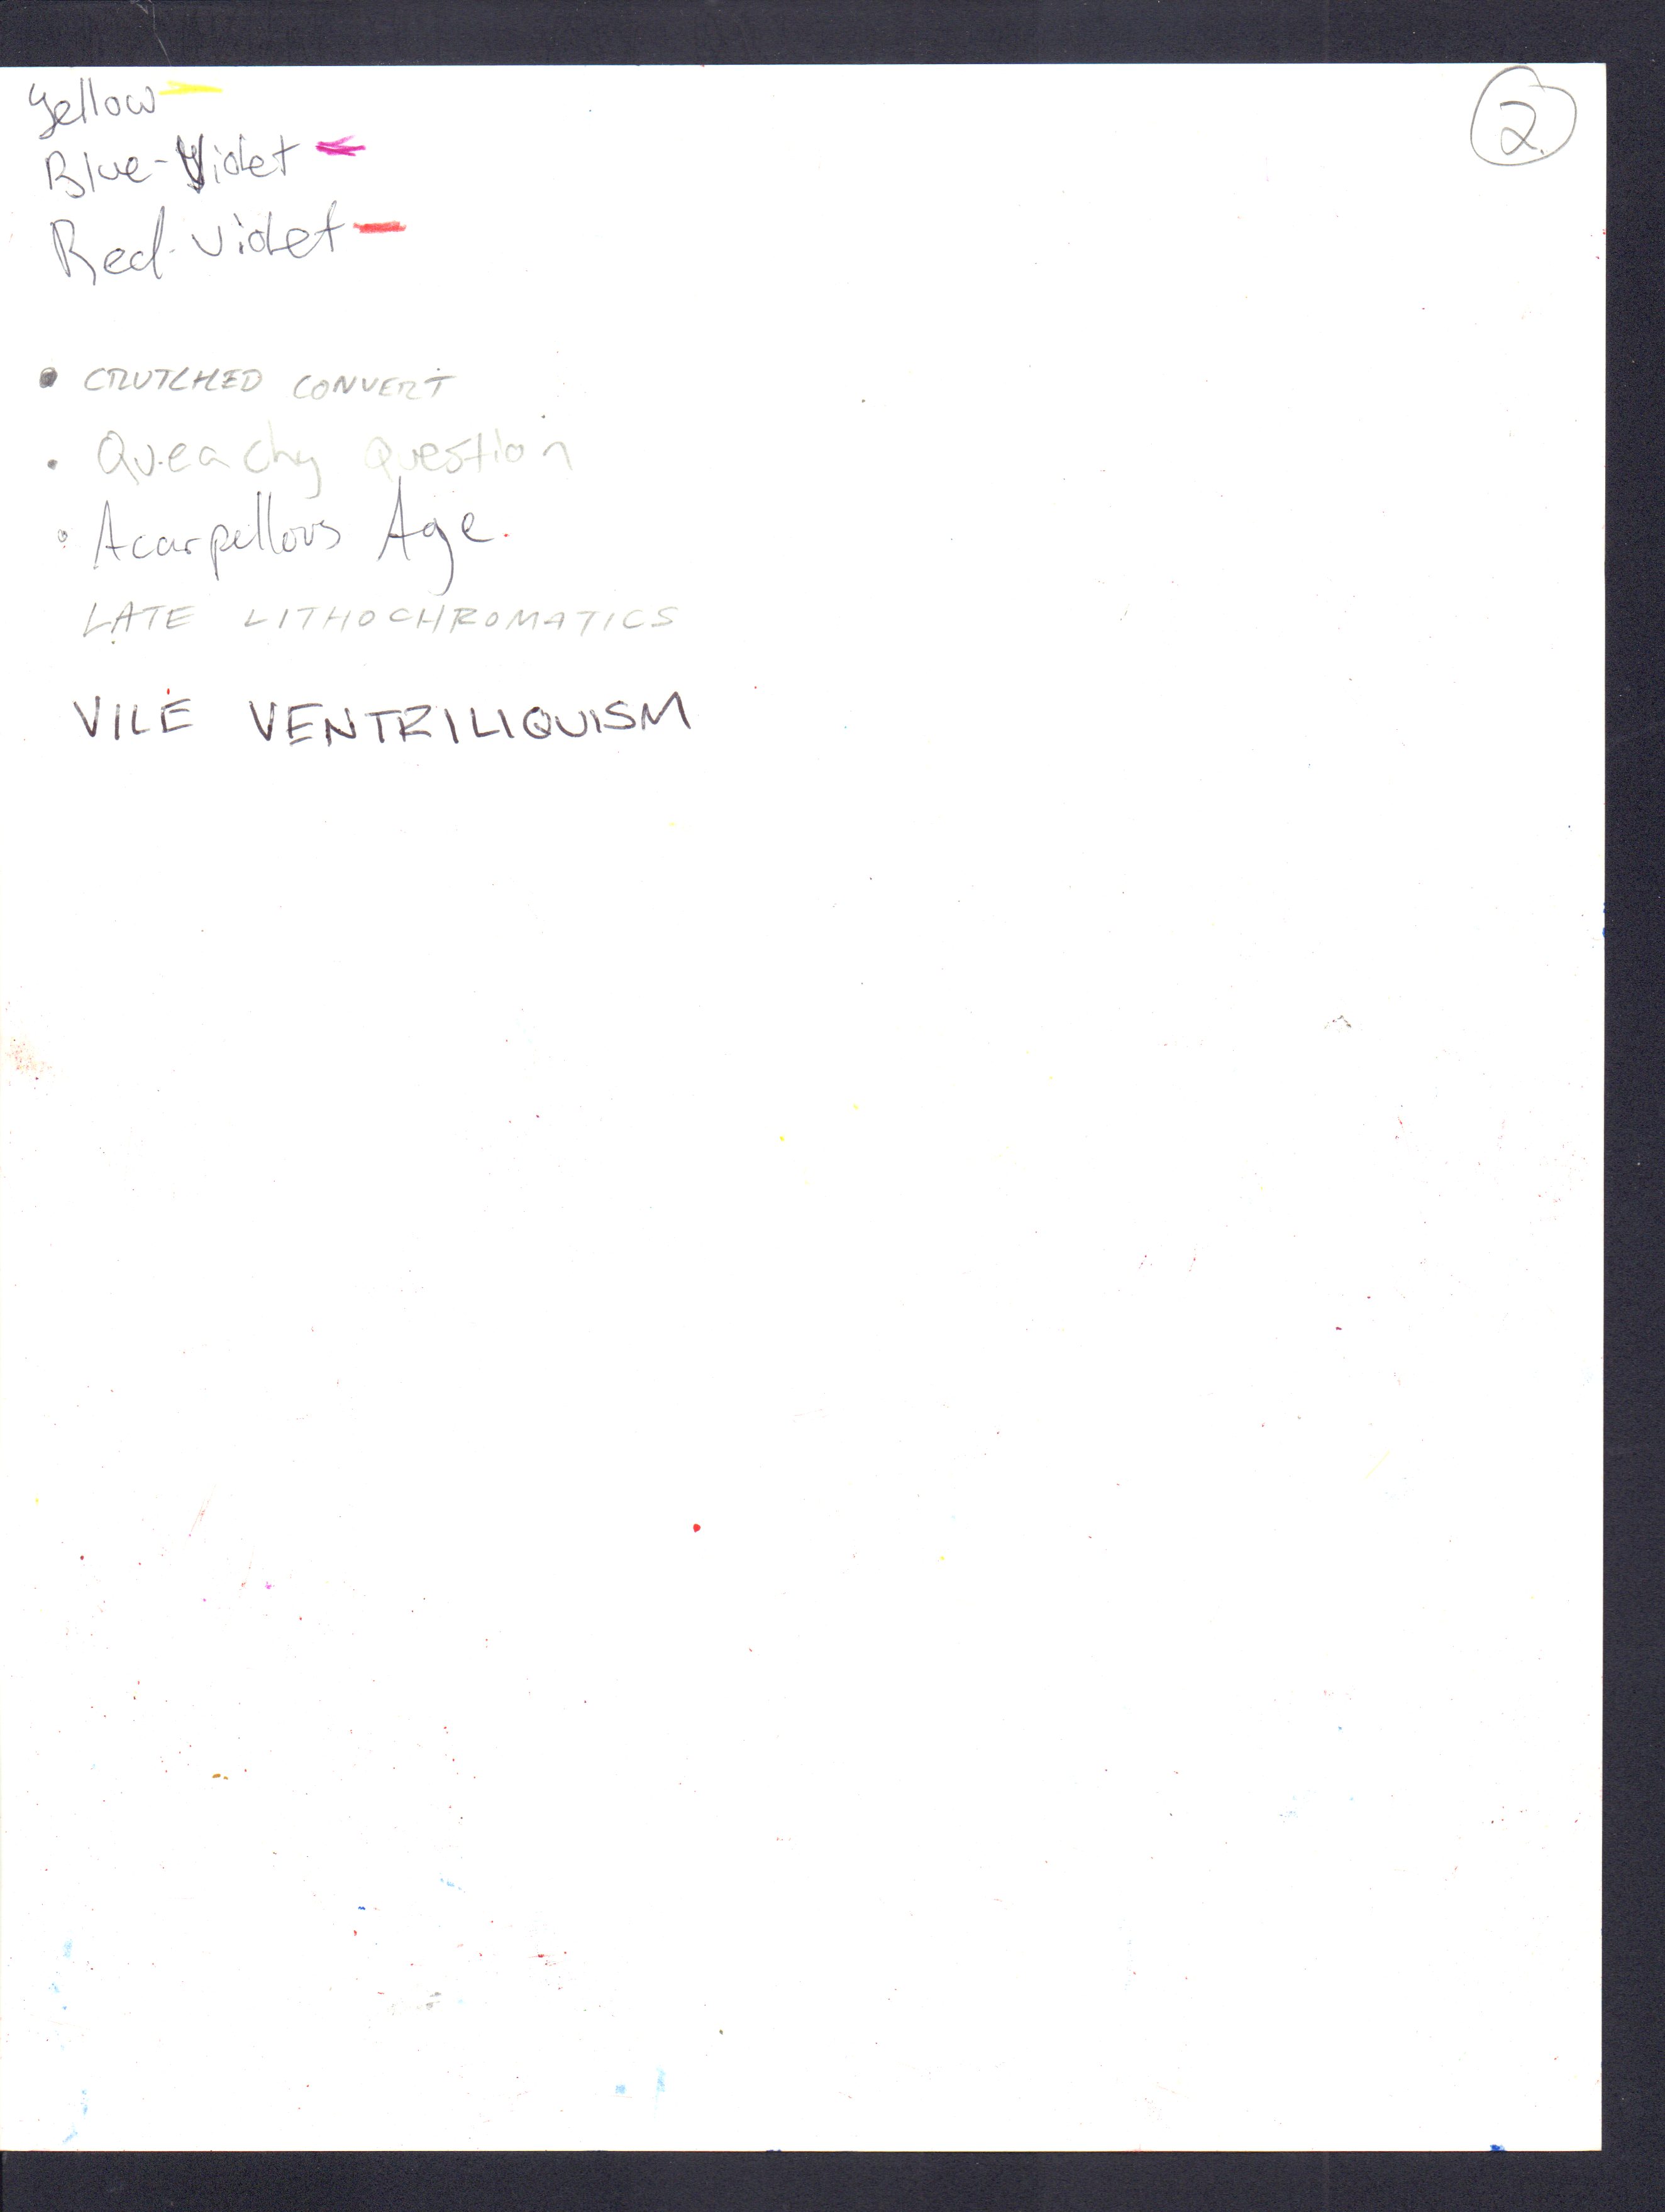 2.
Yellow
Blue-Violet
Red-Violet
• CRUTCHED CONVERT
• Queachy Question
• Acarpellous Age.
LATE LITHOCHROMATICS
VILE VENTRILIQUISM